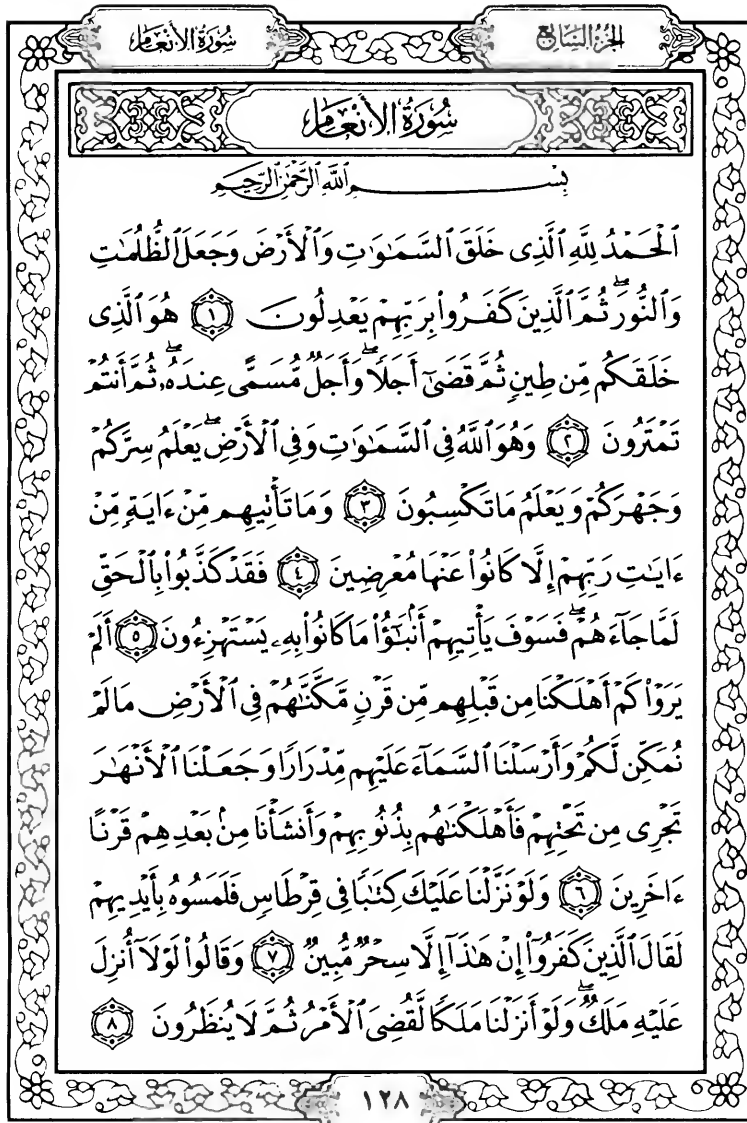 الجزء السابع
سورة الأنعام
سُورَةُ الأَنْعَامِ
بِسْمِ ٱللَّهِ ٱلرَّحْمَٰنِ ٱلرَّحِيمِ
ٱلْحَمْدُ لِلَّهِ ٱلَّذِى خَلَقَ ٱلسَّمَٰوَٰتِ وَٱلْأَرْضَ وَجَعَلَ ٱلظُّلُمَٰتِ
وَٱلنُّورَ ۖ ثُمَّ ٱلَّذِينَ كَفَرُوا۟ بِرَبِّهِمْ يَعْدِلُونَ ١ هُوَ ٱلَّذِى
خَلَقَكُم مِّن طِينٍ ثُمَّ قَضَىٰٓ أَجَلًا ۖ وَأَجَلٌ مُّسَمًّى عِندَهُۥ ۖ ثُمَّ أَنتُمْ
تَمْتَرُونَ ٢ وَهُوَ ٱللَّهُ فِى ٱلسَّمَٰوَٰتِ وَفِى ٱلْأَرْضِ ۖ يَعْلَمُ سِرَّكُمْ
وَجَهْرَكُمْ وَيَعْلَمُ مَا تَكْسِبُونَ ٣ وَمَا تَأْتِيهِم مِّنْ ءَايَةٍ مِّنْ
ءَايَٰتِ رَبِّهِمْ إِلَّا كَانُوا۟ عَنْهَا مُعْرِضِينَ ٤ فَقَدْ كَذَّبُوا۟ بِٱلْحَقِّ
لَمَّا جَآءَهُمْ ۖ فَسَوْفَ يَأْتِيهِمْ أَنۢبَٰٓؤُا۟ مَا كَانُوا۟ بِهِۦ يَسْتَهْزِءُونَ ٥ أَلَمْ
يَرَوْا۟ كَمْ أَهْلَكْنَا مِن قَبْلِهِم مِّن قَرْنٍ مَّكَّنَّٰهُمْ فِى ٱلْأَرْضِ مَا لَمْ
نُمَكِّن لَّكُمْ وَأَرْسَلْنَا ٱلسَّمَآءَ عَلَيْهِم مِّدْرَارًا وَجَعَلْنَا ٱلْأَنْهَٰرَ
تَجْرِى مِن تَحْتِهِمْ فَأَهْلَكْنَٰهُم بِذُنُوبِهِمْ وَأَنشَأْنَا مِنۢ بَعْدِهِمْ قَرْنًا
ءَاخَرِينَ ٦ وَلَوْ نَزَّلْنَا عَلَيْكَ كِتَٰبًا فِى قِرْطَاسٍ فَلَمَسُوهُ بِأَيْدِيهِمْ
لَقَالَ ٱلَّذِينَ كَفَرُوٓا۟ إِنْ هَٰذَآ إِلَّا سِحْرٌ مُّبِينٌ ٧ وَقَالُوا۟ لَوْلَآ أُنزِلَ
عَلَيْهِ مَلَكٌ ۖ وَلَوْ أَنزَلْنَا مَلَكًا لَّقُضِىَ ٱلْأَمْرُ ثُمَّ لَا يُنظَرُونَ ٨
١٢٨